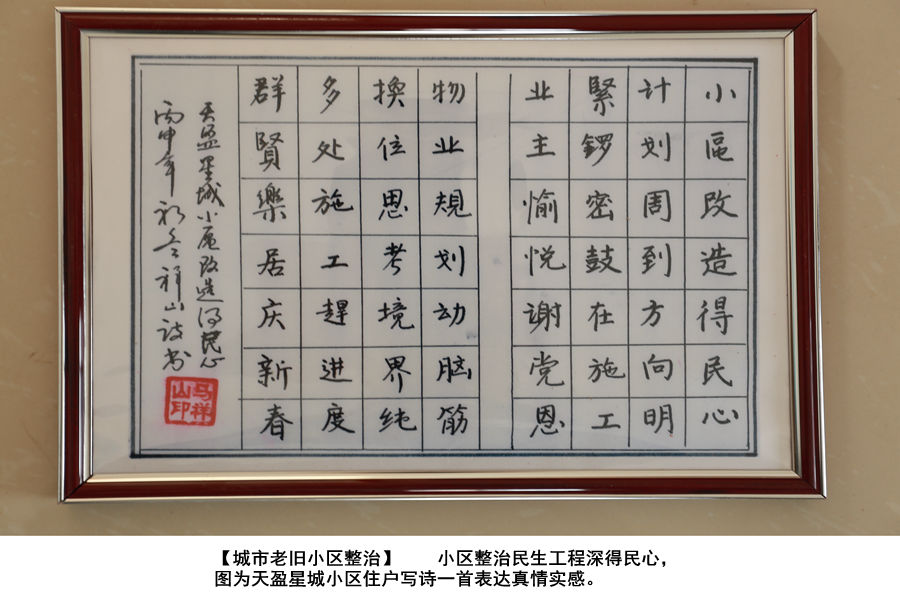 小區改造得民心
计划周到方向明
緊鑼密鼓在施工
业主愉悦谢党恩
物业規划动脑筋
换位思考境界纯
多处施工趕進度
群賢樂居庆新春
天盈星城小區改造得民心
丙申年
祥山诗书
马祥山印
【城市老旧小区整治】 小区整治民生工程深得民心，
图为天盈星城小区住户写诗一首表达真情实感。